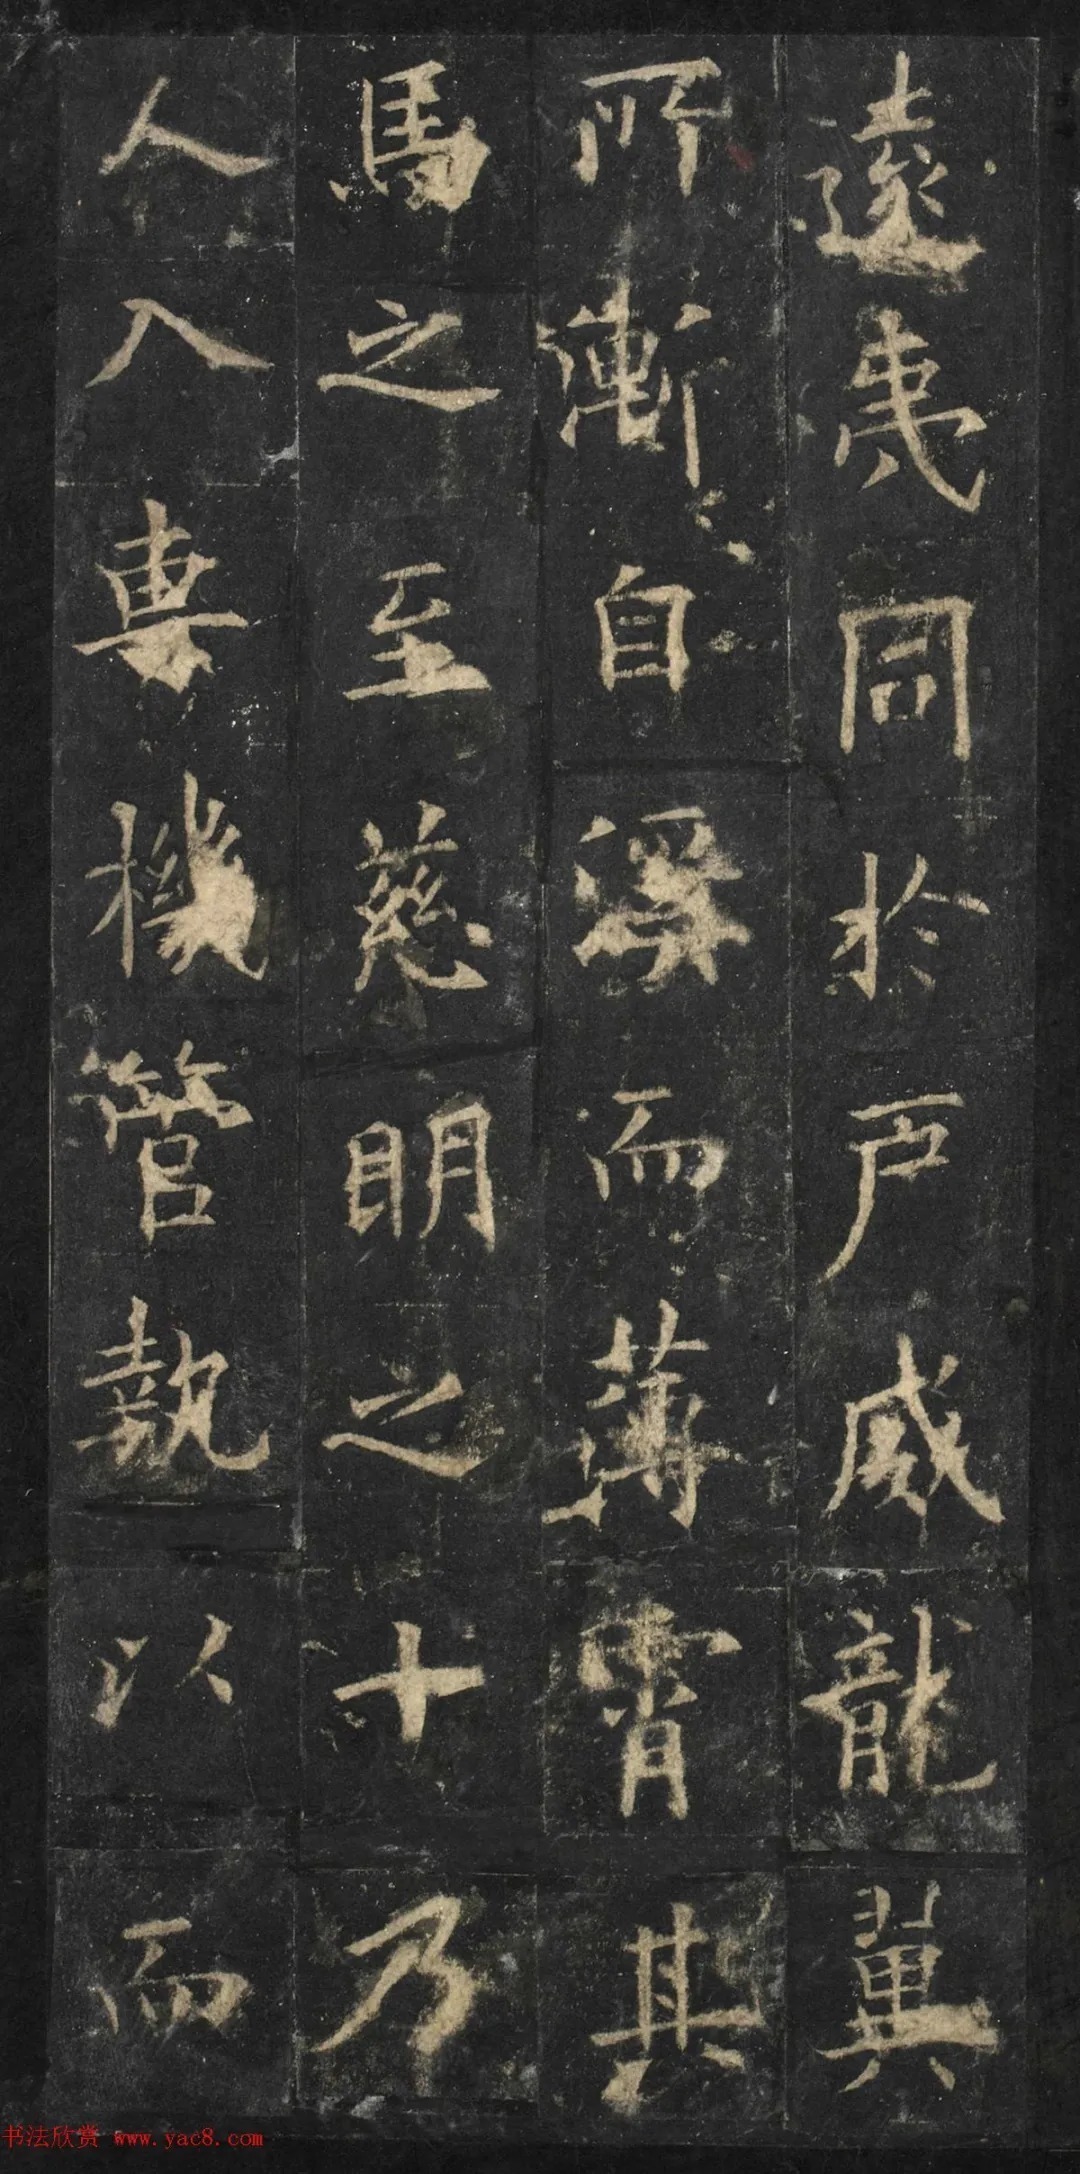 遠同於戶威龍冀
所漸自溟而薄霄其
馬之至慈明之十乃
人入專機管執以而
书法欣赏 www.yac8.com